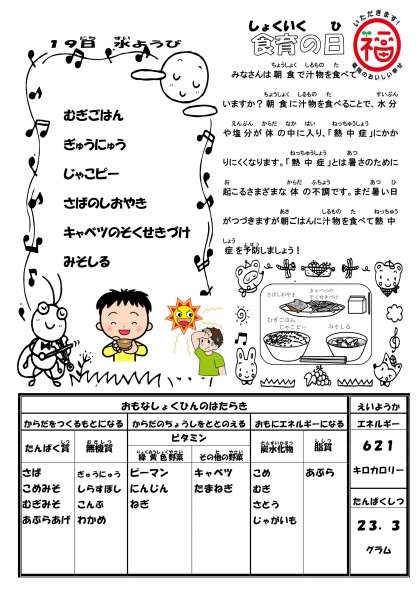 19日 水ようび
むぎごはん
ぎゅうにゅう
じゃこピー
さばのしおやき
キャベツのそくせきづけ
みそしる
しょくいく ひ
食育の日
いただきます!
福
福岡のおいしい幸せ
ちょうしょく しるもの た
みなさんは朝食で汁物を食べて
ちょうしょく しるもの た すいぶん
いますか?朝食に汁物を食べることで、水分
えんぶん からだ なか はい ねっちゅうしょう
や塩分が体の中に入り、「熱中症」にかか
ねっちゅうしょう あつ
りにくくなります。「熱中症」とは暑さのために
お からだ ふちょう あつ ひ
起こるさまざまな体の不調です。まだ暑い日
あさ しるもの た ねっちゅう
がつづきますが朝ごはんに汁物を食べて熱中
しょう よぼう
症を予防しましょう!
さばしおやき
きゃべつの
そくせきづけ
むぎごはん
じゃこピー
みそしる
おもなしょくひんのはたらき
えいようか
からだをつくるもとになる
からだのちょうしをととのえる
おもにエネルギーになる
エネルギー
たんぱく質
無機質
ビタミン
緑黄色野菜
その他の野菜
炭水化物
脂質
621
キロカロリー
さば
こめみそ
むぎみそ
あぶらあげ
ぎゅうにゅう
しらすぼし
こんぶ
わかめ
ピーマン
にんじん
ねぎ
キャベツ
たまねぎ
こめ
むぎ
さとう
じゃがいも
あぶら
たんぱくしつ
23.3
グラム